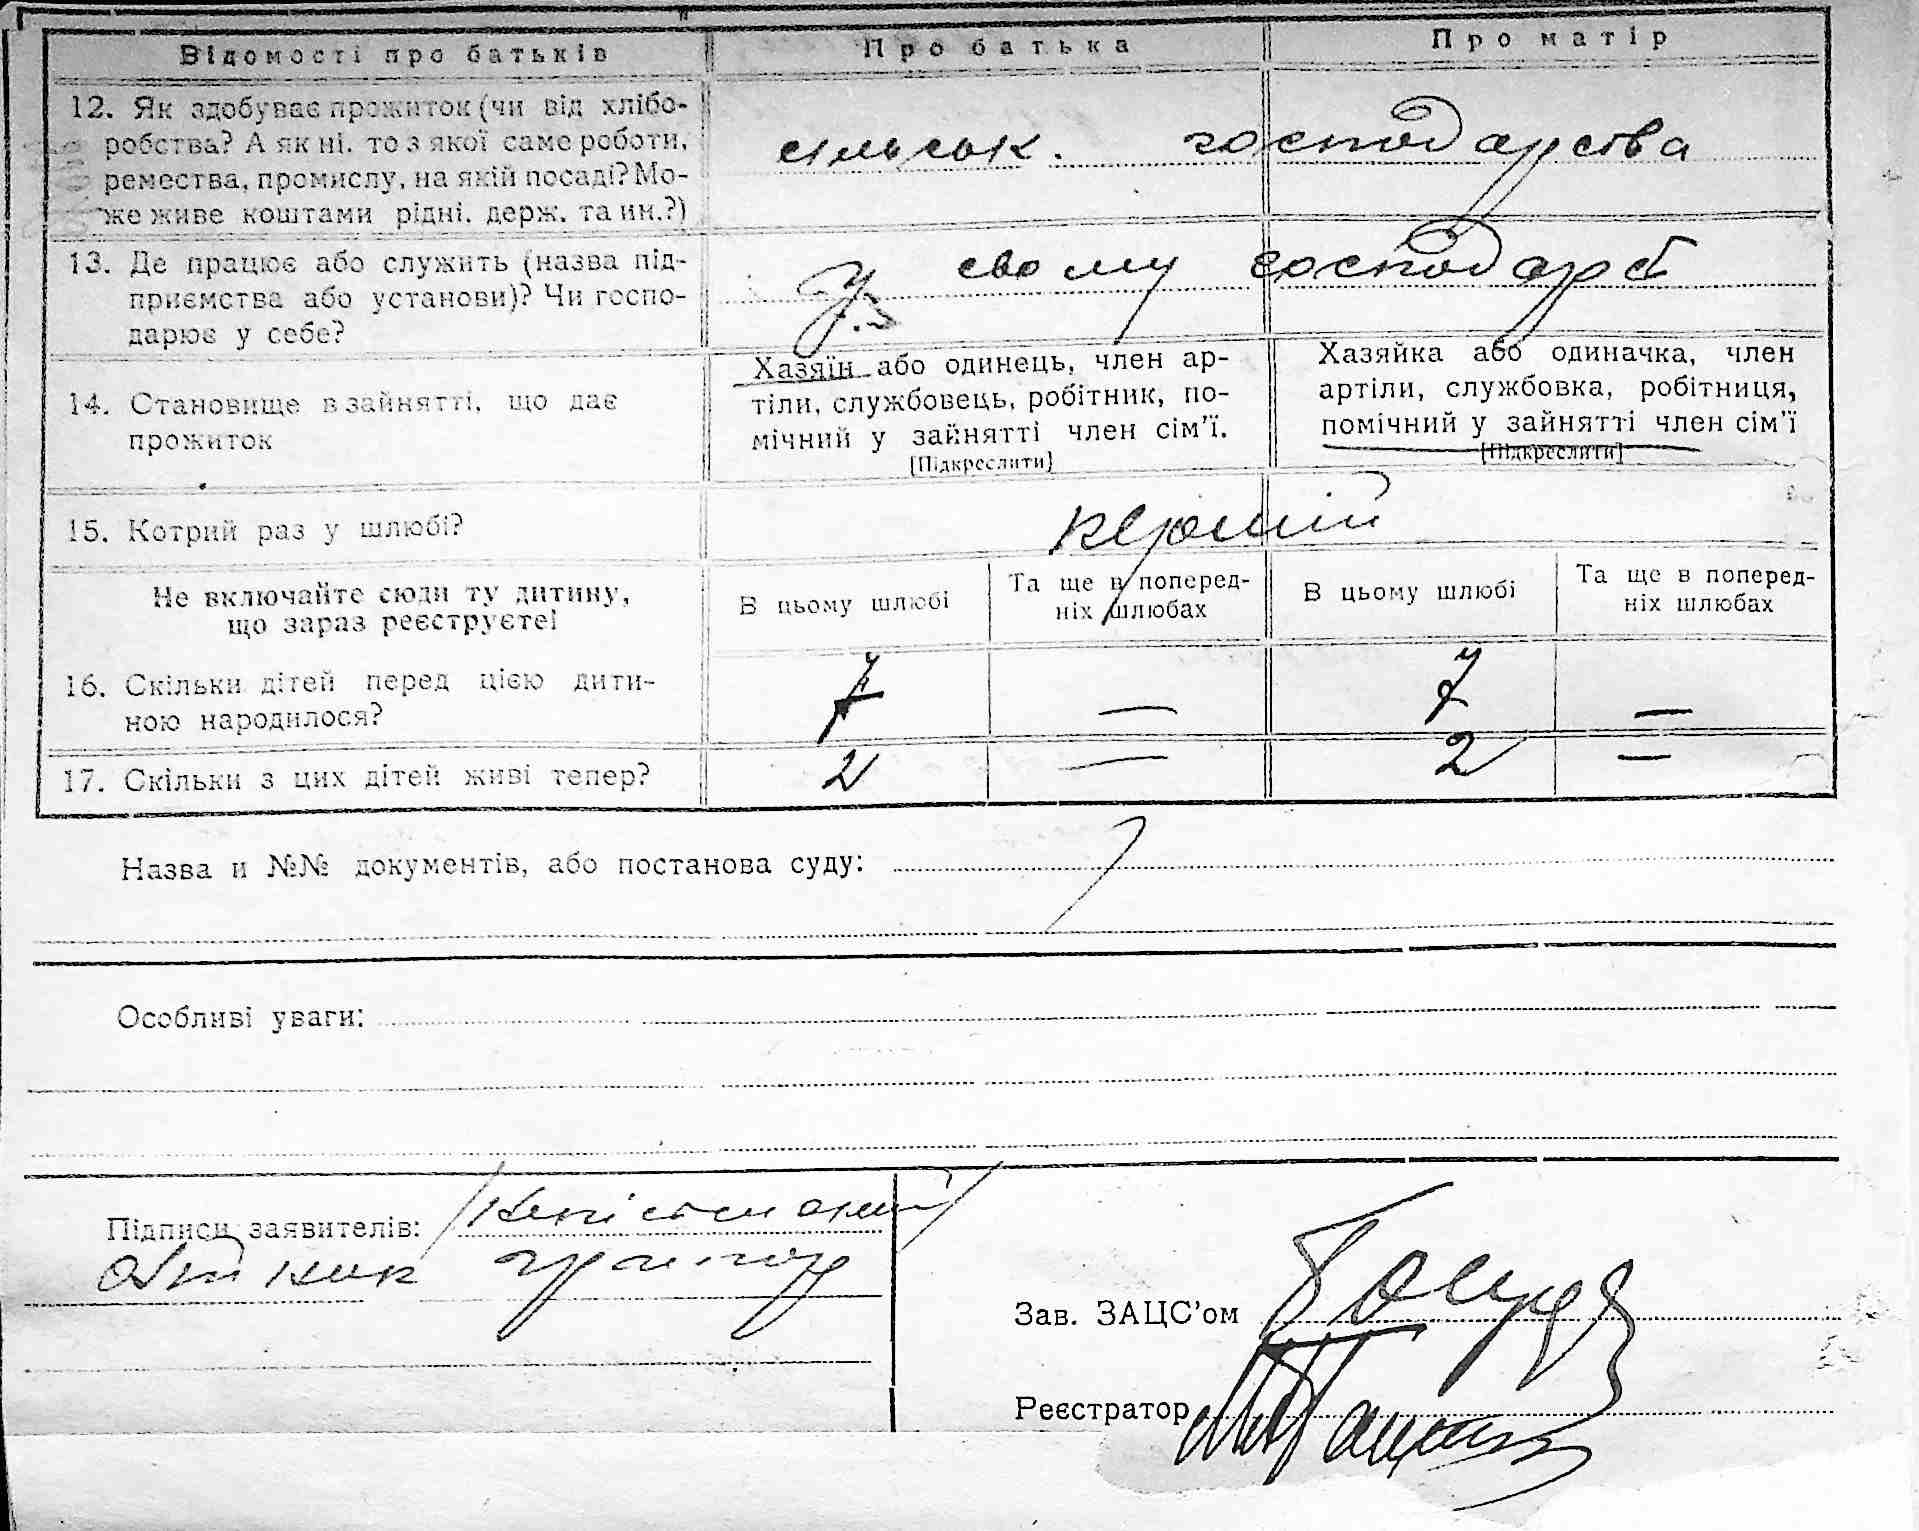 Відомості про батьків Про батька Про матір
12. Як здобуває прожиток (чи від хлібо-
робства? А як ні. то з якої саме роботи,
ремества, промислу, на якій посаді? Мо-
же живе коштами рідні, держ. та ин.?)
сільськ. господарства
13. Де працює або служить (назва під-
приємства або установи)? Чи госпо-
дарює у себе?
У свому господарс
14. Становище в зайнятті, що дає
прожиток
Хазяїн або одинець, член ар-
тіли, службовець, робітник, по-
мічний у зайнятті член сім'ї.
[Підкреслити]
Хазяйка або одиначка, член
артіли, службовка, робітниця,
помічний у зайнятті член сім'ї
[Підкреслити]
15. Котрий раз у шлюбі?
перший
Не включайте сюди ту дитину,
що зараз реєструєте!
В цьому шлюбі
Та ще в поперед-
ніх шлюбах
В цьому шлюбі
Та ще в поперед-
ніх шлюбах
16. Скільки дітей перед цією дити-
ною народилося?
7 — 7 —
17. Скільки з цих дітей живі тепер?
2 — 2 —
Назва и №№ документів, або постанова суду:
Особливі уваги:
Підписи заявителів:
Зав. ЗАЦС'ом
Реєстратор